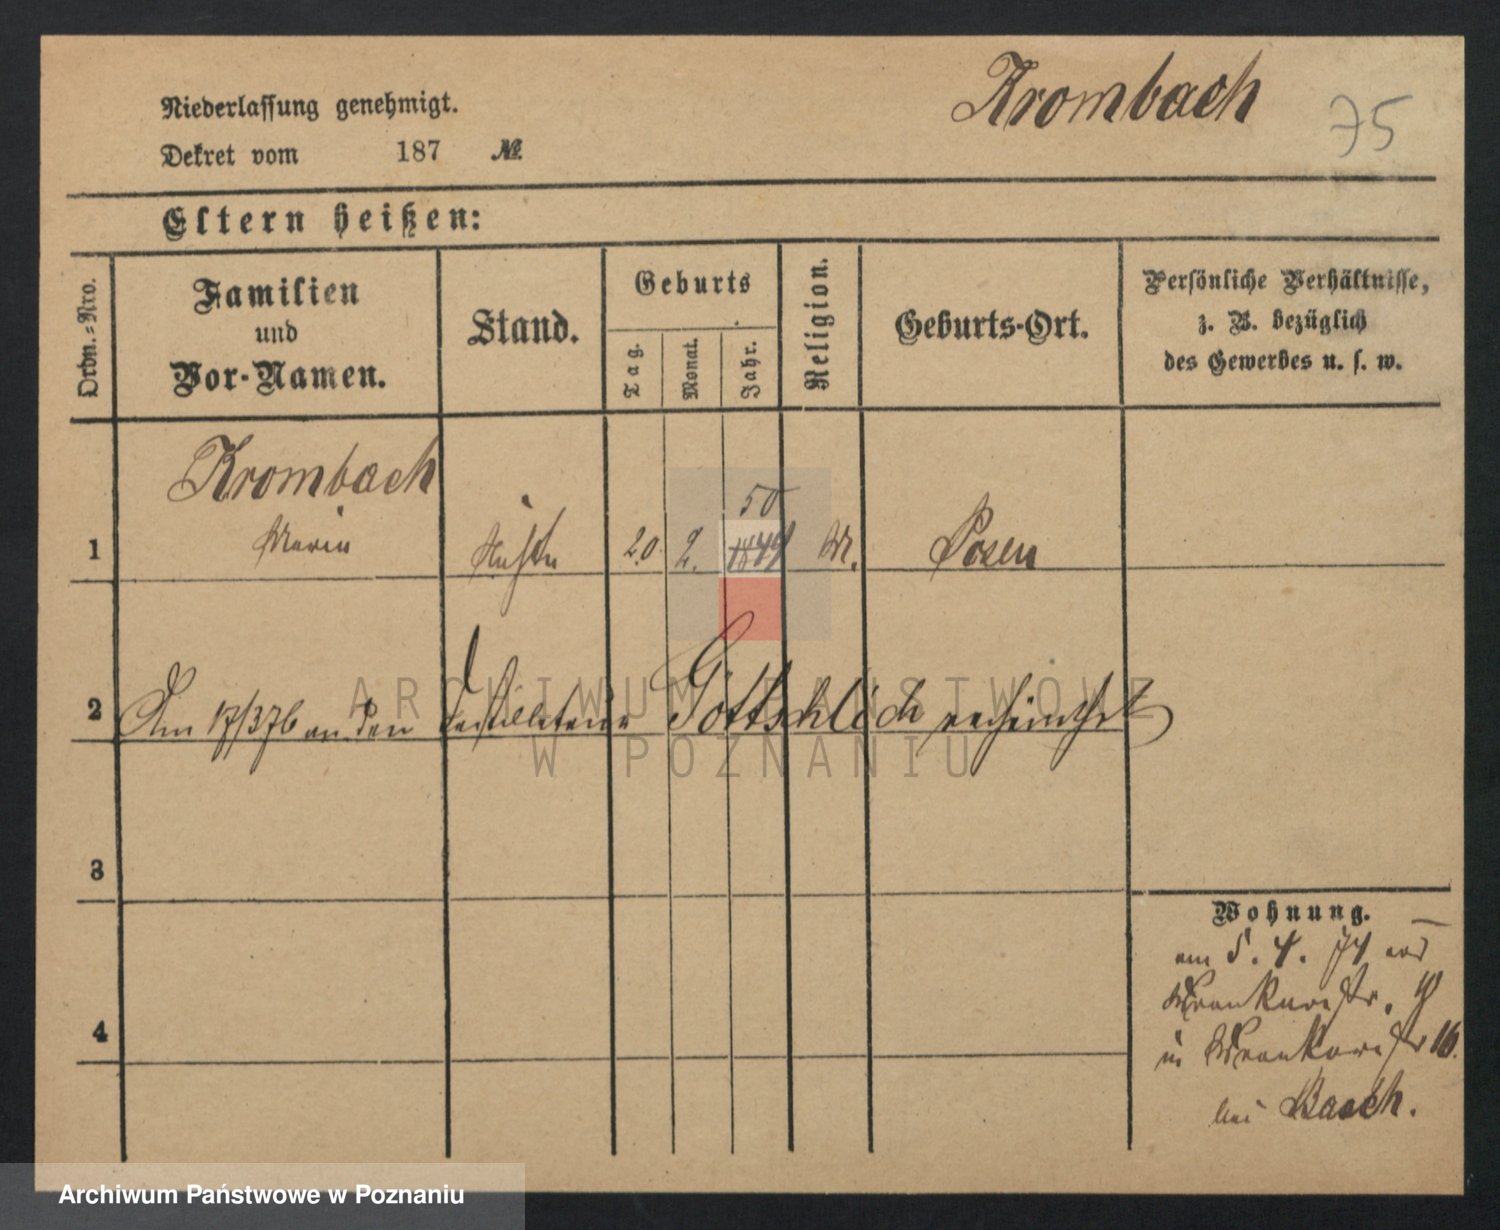 Krombach
75
Niederlassung genehmigt.
Dekret vom 187 №
Eltern heißen:
Ordn.=Nro.
Familien
und
Vor-Namen.
Stand.
Geburts
Tag.
Monat.
Jahr.
Religion.
Geburts-Ort.
Persönliche Verhältnisse,
z. B. bezüglich
des Gewerbes u. s. w.
Krombach
50
1 Marie 20 2. 1849 Posen
2 Am 17/3 76 an den Destillateur Gottschlich verheirathet
ARCHIWUM PAŃSTWOWE
W POZNANIU
3
Wohnung.
am 5. 4. 74 aus
in 16.
4
bei Basch.
Archiwum Państwowe w Poznaniu